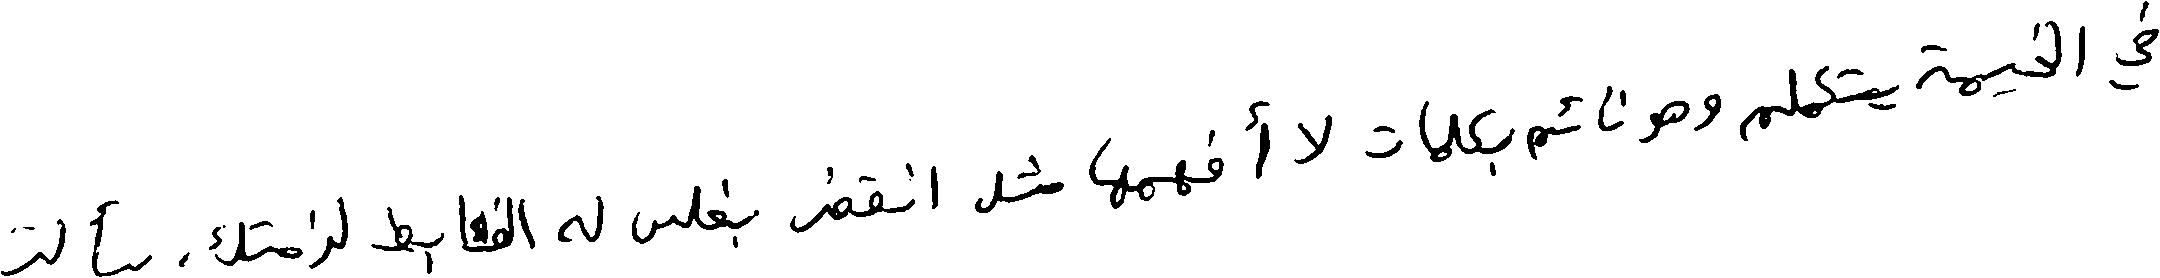 في الخيمة يتكلم وهو نائم بكلمات لا أفهمها مثل انقض بغلس له الضابط لزمتك. سألت